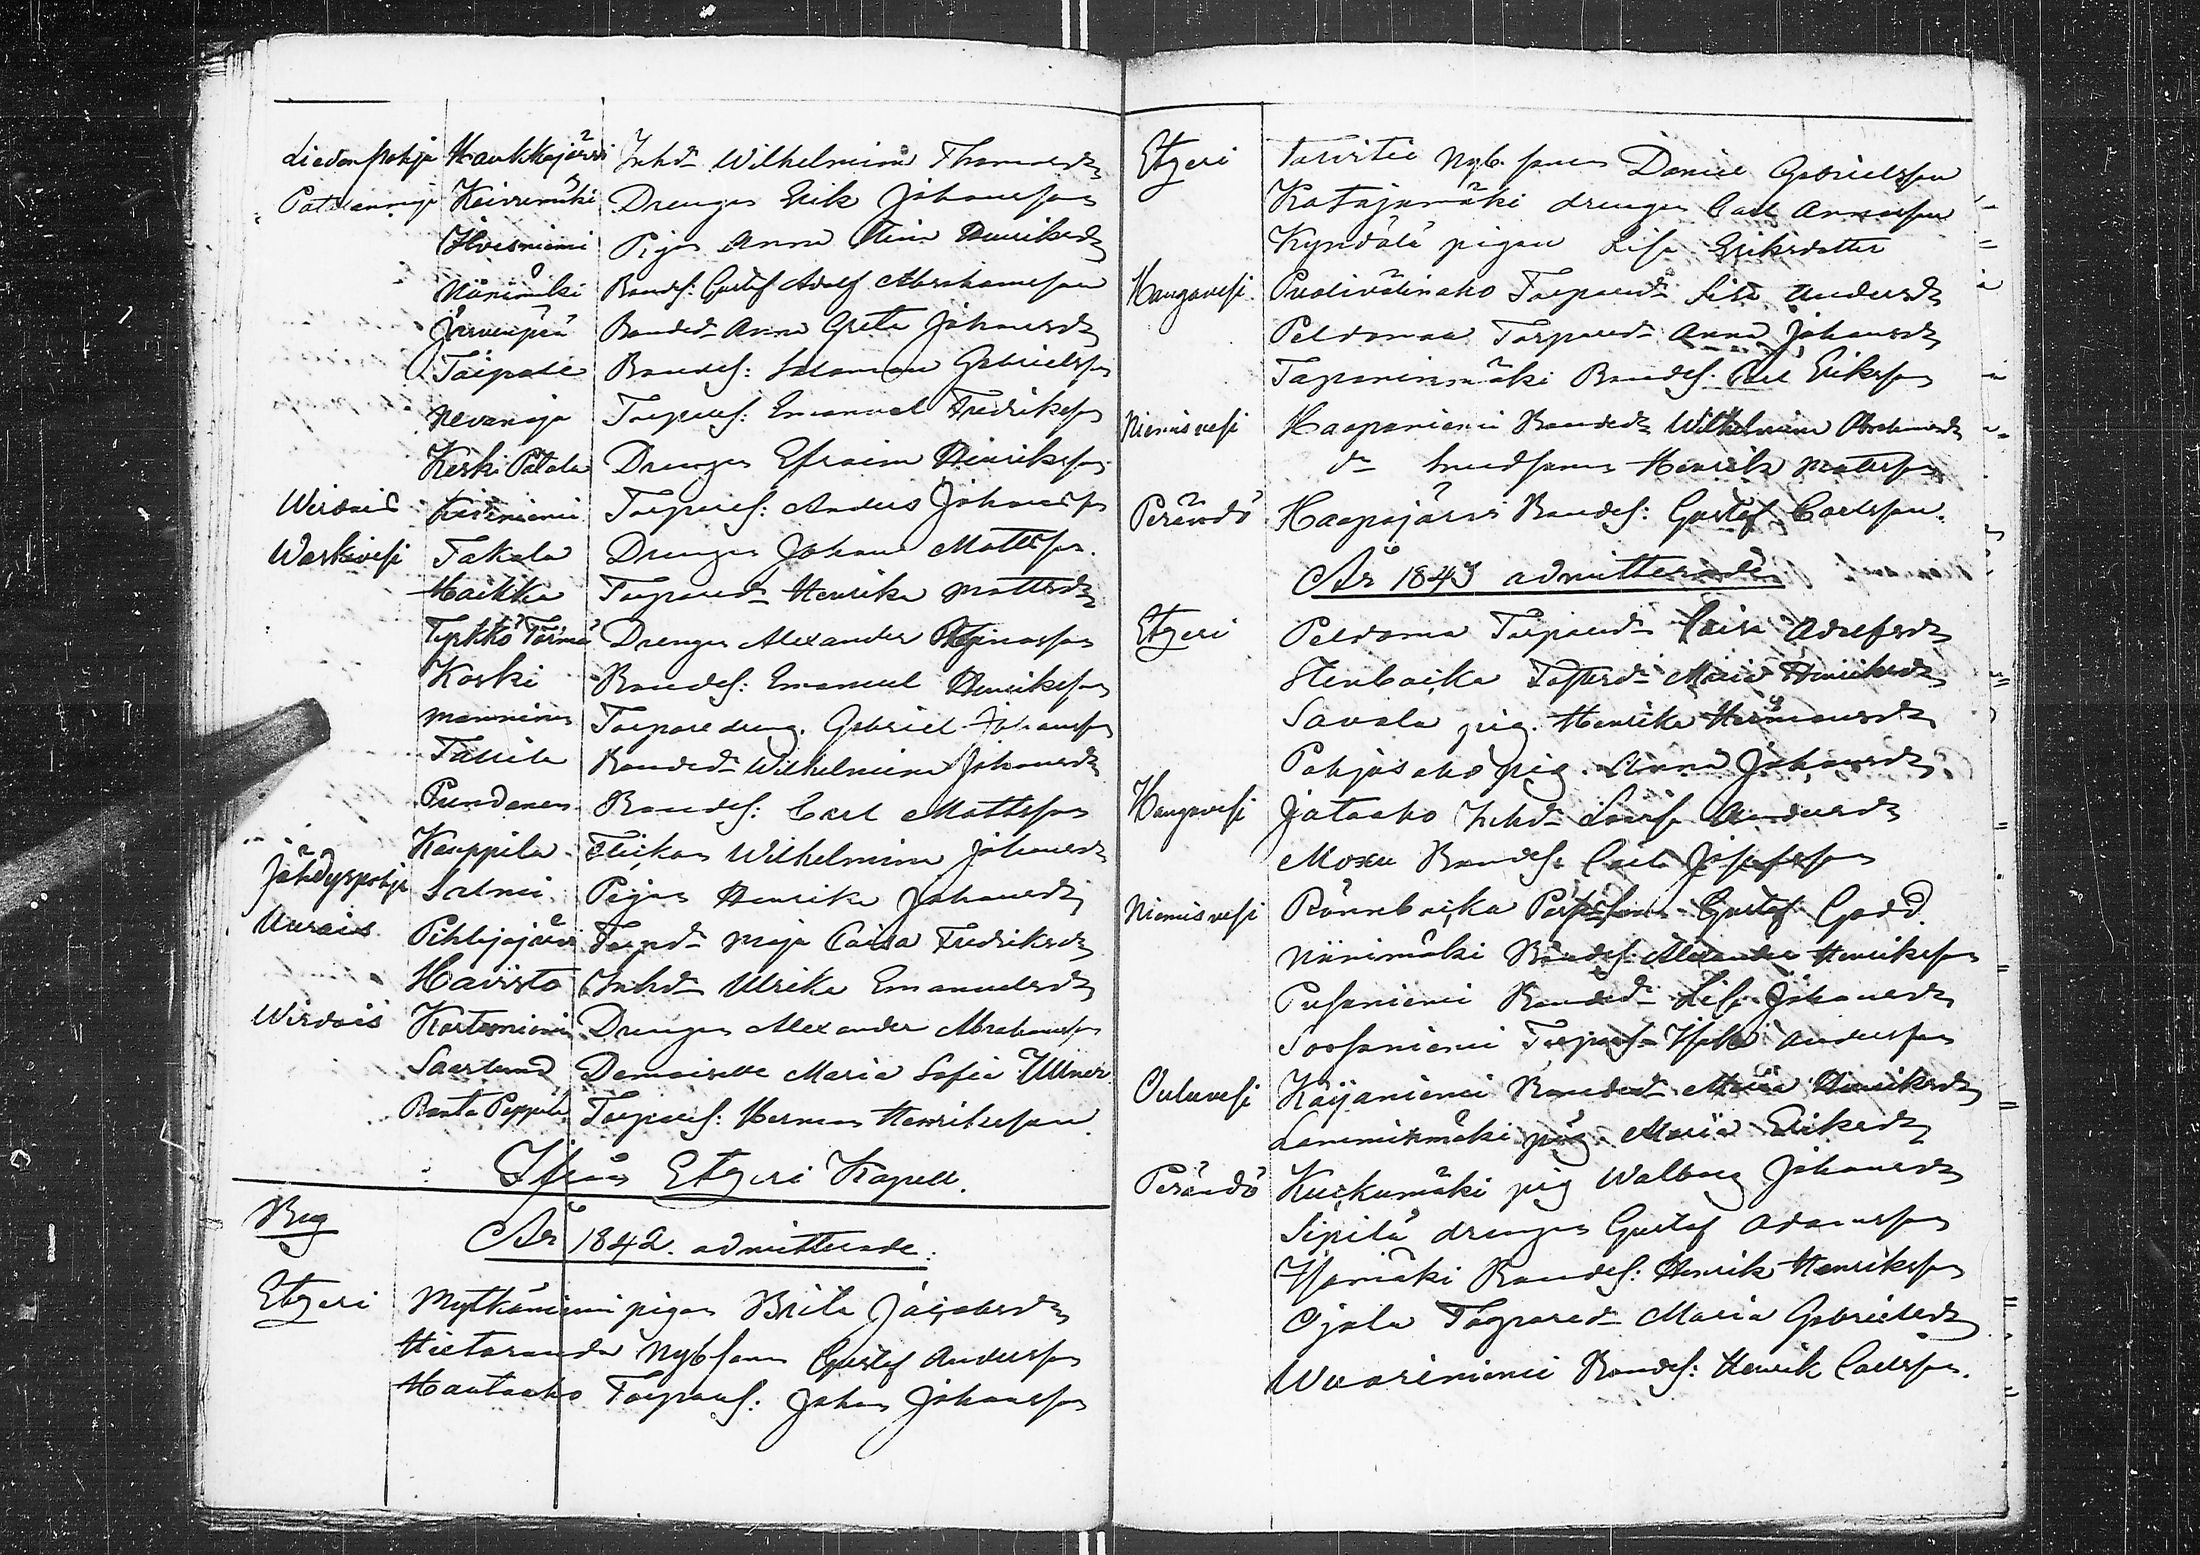 Liedenpohja Haukkajärvi Inhdr Wilhelmina Thomasdr
Patalannija Koivumäki Drengen Erik Johansson
Ilvesniemi Pigan Anna Stina Henriksdr
Niinimäki Bondes: Gustaf Adolf Abrahamsson
Järvenpää Bondedr Anna Greta Johansdr
Taipale Bondes: Salomon Gabrielsson
Nevanaja Torpares: Emanuel Fredriksson
Keski Patala Drengen Efraim Henriksson
Wirdois Torpares: Anders Johansson
Waskivesi Takala Drengen Johan Mattsson
Haikka Torparedr Henrika Mattsdr
Tyrkkö Törmä Drengen Alexander
Koski Bondes: Emanuel Henriksson
Manninen Torpare dreng. Gabriel Johansson
Bondedr Wilhelmina Johansdr
Pundanen Bondes: Carl Mattsson
Kauppila Flickan Wilhelmina Johansdr
Jähdyspohja Salmi Pigan Henrika Johansdr
Uurais Pihlajajärvi Torpdr Maja Caisa Fredriksdr
Havisto Inhdr Ulrika Emanuelsdr
Wirdois Kortesniemi Drengen Alexander Abrahamsson
Saarlund Demoiselle Maria Sofia Ullner
Ranta Peppila Torpares: Herman Henriksson
Ifrån Etzeri Kapell.
By
År 1842 admitterade:
Etzeri Mytkäniemi pigan Brita Jacobsdr
Hietaranda Nybsonen Gustaf Andersson
Hautaaho Torpares: Johan Johansson
Etzeri Nyb. sonen Daniel Gabrielsson
Katajamäki drengen Carl
Kyndälä pigan Lisa Eriksdotter
Hangavesi Torparedr Lisa Andersdr
Peldomaa Torparedr Anna Johansdr
Tapaninmäki Bondes. Carl Eriksson
Niemisvesi Haapaniemi Bondedr Wilhelmina Abrahamsdr
do Henrik Mattsson
Perändö Haapajärvi Bondes: Gustaf Carlsson.
År 1843 admitterade
Etzeri Peldoma Torparedr Caisa Adolfsdr
Stenbacka Maria Henriksdr
Savola pig. Henrika Hermansdr
Pohjasaho pig. Anna Johansdr
Hangavesi Jataaho Inhdr Lovisa Andersdr
Moxu Bondes. Carl Josefsson
Niemisvesi Rönnbacka Gustaf Gadd
Niinimäki Bondes. Alexander Henriksson
Pusaniemi Bondedr Lisa Johansdr
Soosaniemi Torpares. Isak Andersson
Ouluvesi Käijäniemi Bondedr Maria Henriksdr
Lamminmäki pig. Maria Eriksdr
Perändö Kuckumäki pig Walborg Johansdr
Sipilä drengen Gustaf Adamsson
Isomäki Bondes: Henrik Henriksson
Ojala Torparedr Maria Gabrielsdr
Wuoriniemi Bondes: Henrik Carlsson.